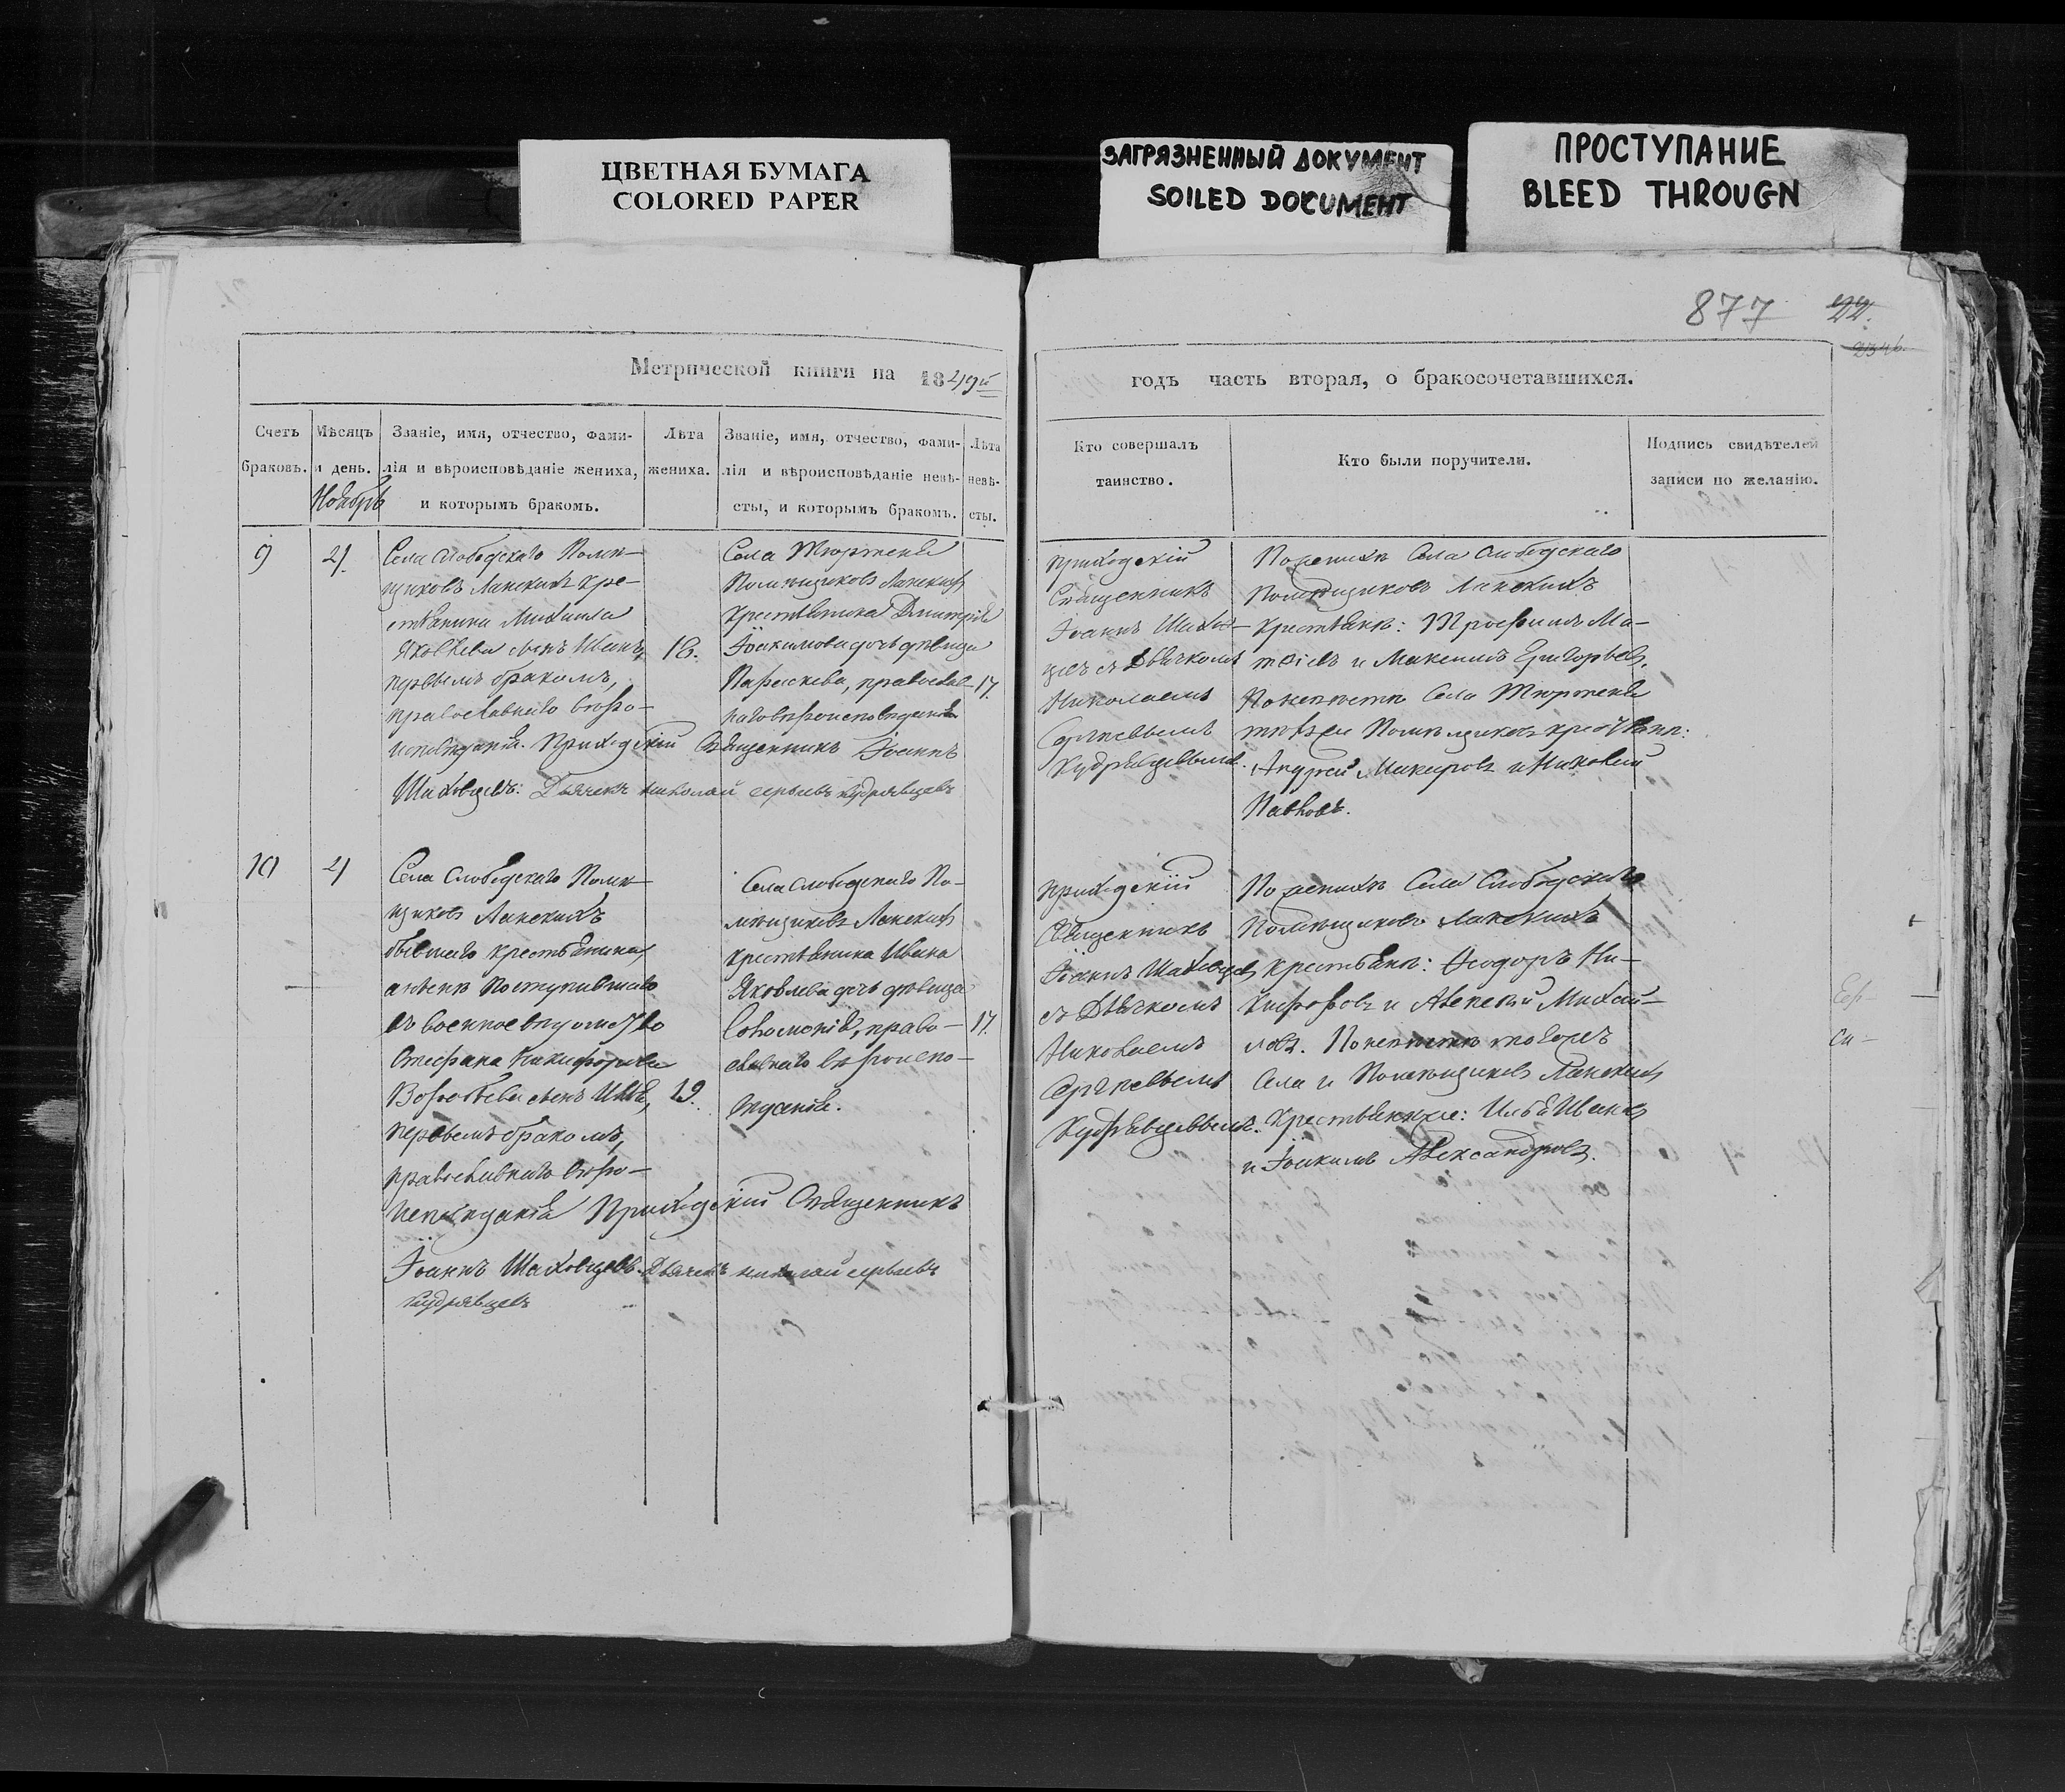 ЦВЕТНАЯ БУМАГА
COLORED PAPER
ЗАГРЯЗНЕННЫЙ ДОКУМЕНТ
SOILED DOCUMENT
ПРОСТУПАНИЕ
BLEED THROUGN
877 22.
Метрической книги на 1849й
годъ часть вторая, о бракосочетавшихся.
Счетъ
браковъ.
Мѣсяцъ
и день.
Ноябрь
Званіе, имя, отчество, фами-
лія и вѣроисповѣданіе жениха,
и которымъ бракомъ.
Лѣта
жениха.
Званіе, имя, отчество, фами-
лія и вѣроисповѣданіе невѣ-
сты, и которымъ бракомъ.
Лѣта
невѣ-
сты.
Кто совершалъ
таинство.
Кто были поручители.
Подпись свидѣтелей
записи по желанію.
9
Села Слободскаго Помѣ-
щиковъ Ланскихъ кре-
стьянина Михаила
Яковлева сынъ Иванъ,
первымъ бракомъ,
православнаго вѣро-
исповѣданія. Приходскій Священникъ Іоаннъ
Шаховцевъ: Дьячекъ Николай Сергѣевъ Кудрявцевъ
18.
Села
Помѣщиковъ Ланскихъ
крестьянина Димитрія
Іоакимова дочь дѣвица
Параскева, православ-
наго вѣроисповѣданія
17.
Приходскій
Священникъ
Іоаннъ Шахов-
цевъ съ Дьячкомъ
Николаемъ
Сергѣевымъ
Кудрявцевымъ.
По женихѣ Села Слободскаго
Помѣщиковъ Ланскихъ
крестьяне: Трофимъ Ма-
и Максимъ Григорьевъ.
По невѣстѣ Села
тѣхъ же Помѣщиковъ крестьяне:
Андрей и
Павловъ.
10
Села Слободскаго Помѣ-
щиковъ Ланскихъ
бывшаго крестьянина,
а нынѣ Поступившаго
въ военное вѣдомство
Стефана Никифорова
Воробьева сынъ Илья,
первымъ бракомъ,
православнаго вѣро-
исповѣданія Приходскій Священникъ
Іоаннъ Шаховцевъ. Дьячекъ Николай Сергѣевъ
Кудрявцевъ
19.
Села Слободскаго По-
мѣщиковъ Ланскихъ
крестьянина Ивана
Яковлева дочь дѣвица
Соломонія, право-
славнаго вѣроиспо-
вѣданія.
17.
Приходскій
Священникъ
Іоаннъ Шаховцевъ
съ Дьячкомъ
Николаемъ
Сергѣевымъ
Кудрявцевымъ.
По женихѣ Села Слободскаго
Помѣщиковъ Ланскихъ
крестьяне: Ѳеодоръ Ни-
кифоровъ и Алексѣй Михай-
ловъ. По невѣстѣ того жъ
Села и Помѣщиковъ Ланскихъ
Крестьяне: Илья Ивановъ
и Іоакимъ Александровъ.